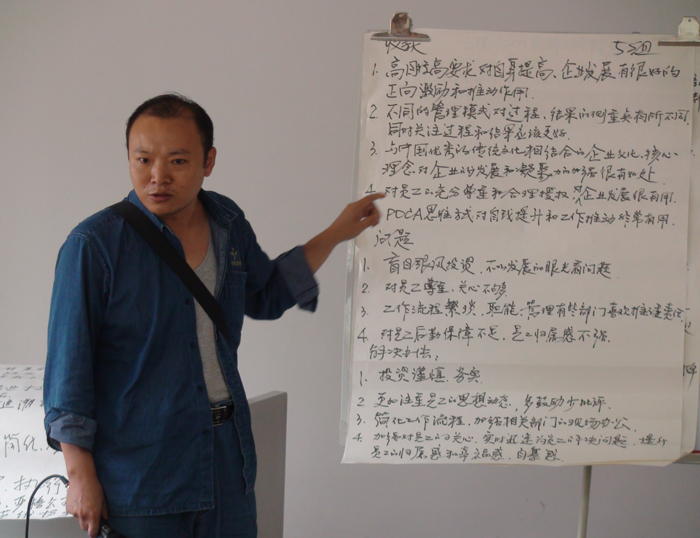 收获 5组
1. 高目标高要求对自身提高、企业发展有很好的
正向激励和推动作用.
2. 不同的管理模式对过程、结果的侧重点有所不同
同时关注过程和结果应该更好.
3. 与中国优秀的传统文化相结合的企业文化、核心
理念对企业的发展和凝聚力的加强很有好处
4. 对员工的充分尊重和合理授权对企业发展很有用.
PDCA思维方式对自我提升和工作推动非常有用.
问题
1. 盲目跟风投资, 不以发展的眼光看问题
2. 对员工尊重, 关心不够
3. 工作流程繁琐, 职能、管理有些部门喜欢推诿责任
4. 对员工后勤保障不足, 员工归属感不强
解决办法:
1. 投资谨慎, 务实
2. 更加注重员工的思想动态, 多鼓励少批评.
3. 简化工作流程, 加强相关部门的现场办公.
4. 加强对员工的关心, 及时为员工解决问题, 提升
员工的归属感和 感, 自豪感
简化